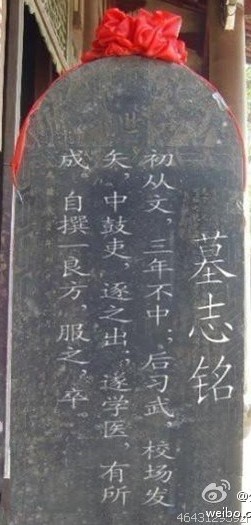 墓志铭
初从文，三年不中；后习武，校场发
矢，中鼓吏，逐之出；遂学医，有所
成。自撰一良方，服之，卒。
weibo.c